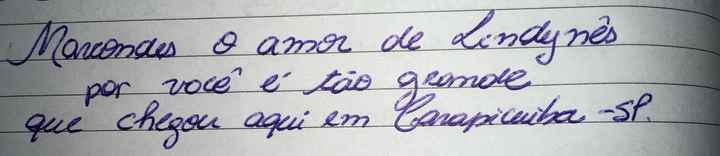 Marcondes o amor de Lindynês
por você é tão grande
que chegou aqui em Carapicuiba -SP.